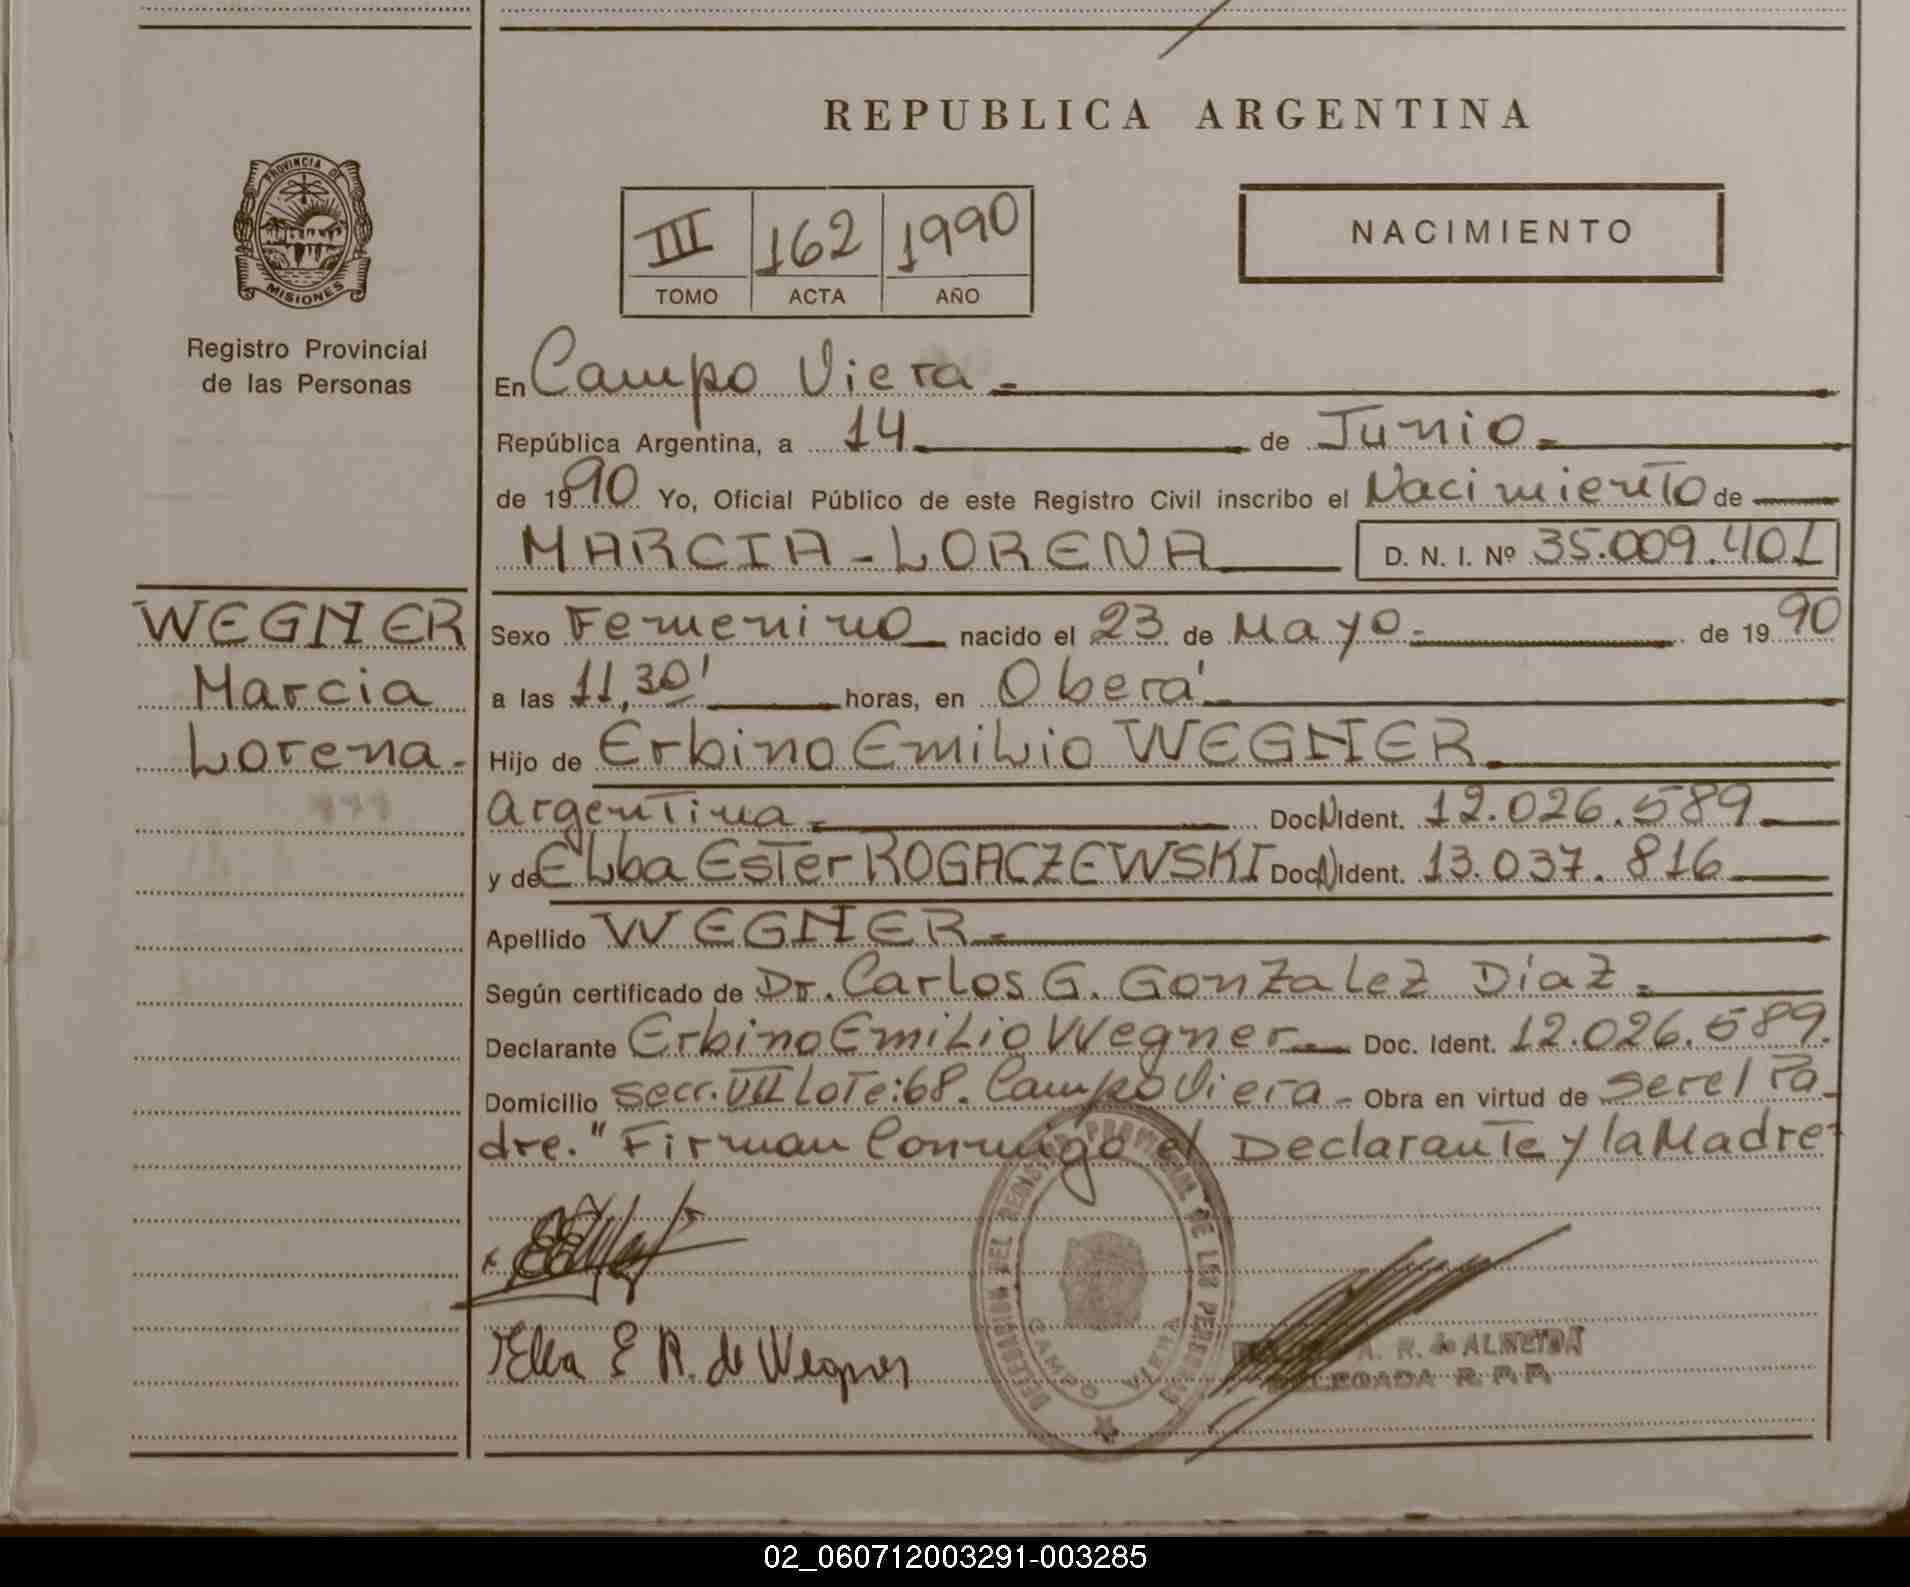 REPUBLICA ARGENTINA
PROVINCIA DE
MISIONES
Registro Provincial
de las Personas
III 162 1990
TOMO ACTA AÑO
NACIMIENTO
En Campo Viera.-
República Argentina, a 14 de Junio.-
de 1990 Yo, Oficial Público de este Registro Civil inscribo el Nacimiento de
MARCIA-LORENA D. N. I. Nº 35.009.401
WEGNER
Marcia
Lorena.-
Sexo Femenino nacido el 23 de Mayo.- de 1990
a las 11,30' horas, en Oberá.-
Hijo de Erbino Emilio WEGNER.
Argentina.- Doc.N.Ident. 12.026.589
y de Elba Ester ROGACZEWSKI Doc.N.Ident. 13.037.816
Apellido WEGNER.-
Según certificado de Dr. Carlos G. Gonzalez Díaz.-
Declarante Erbino Emilio Wegner.- Doc. Ident. 12.026.589.
Domicilio secc. VII Lote:68. Campo Viera.- Obra en virtud de ser el Pa-
dre." Firman Conmigo el Declarante y la Madre-
Elba E R. de Wegner
DELEGACION DEL REGISTRO PROVINCIAL DE LAS PERSONAS
CAMPO VIERA
A. R. de ALMEIDA
DELEGADA R.P.P.
02_060712003291-003285